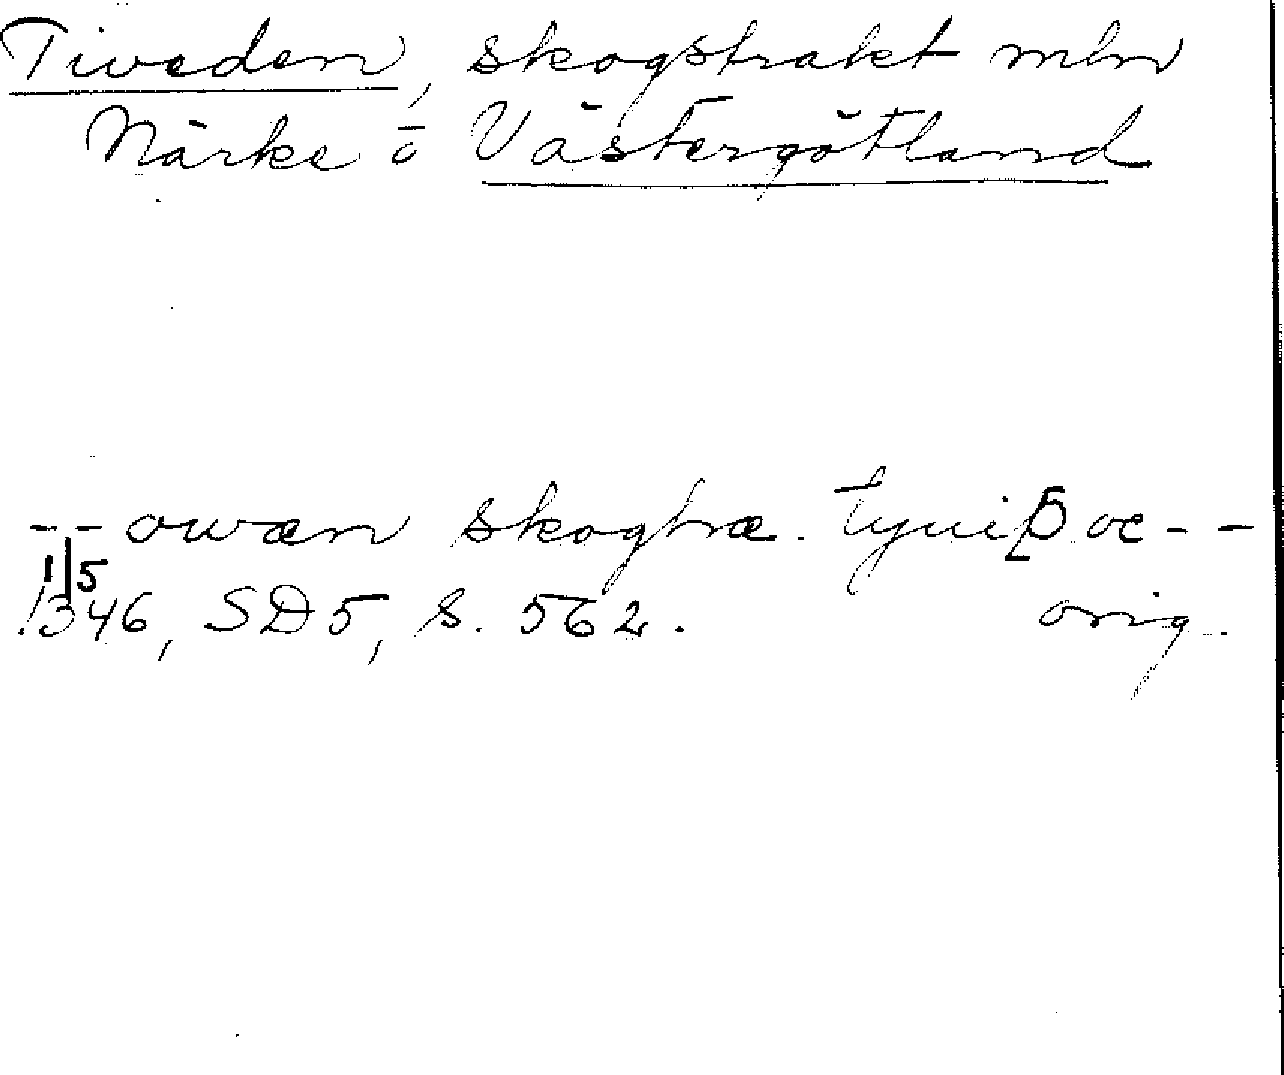 Tiveden, skogstrakt mln
Närke o Västergötland
-- owæn skoghæ. tyuiþ oc --
1/5
1346, SD5, s. 562. orig.